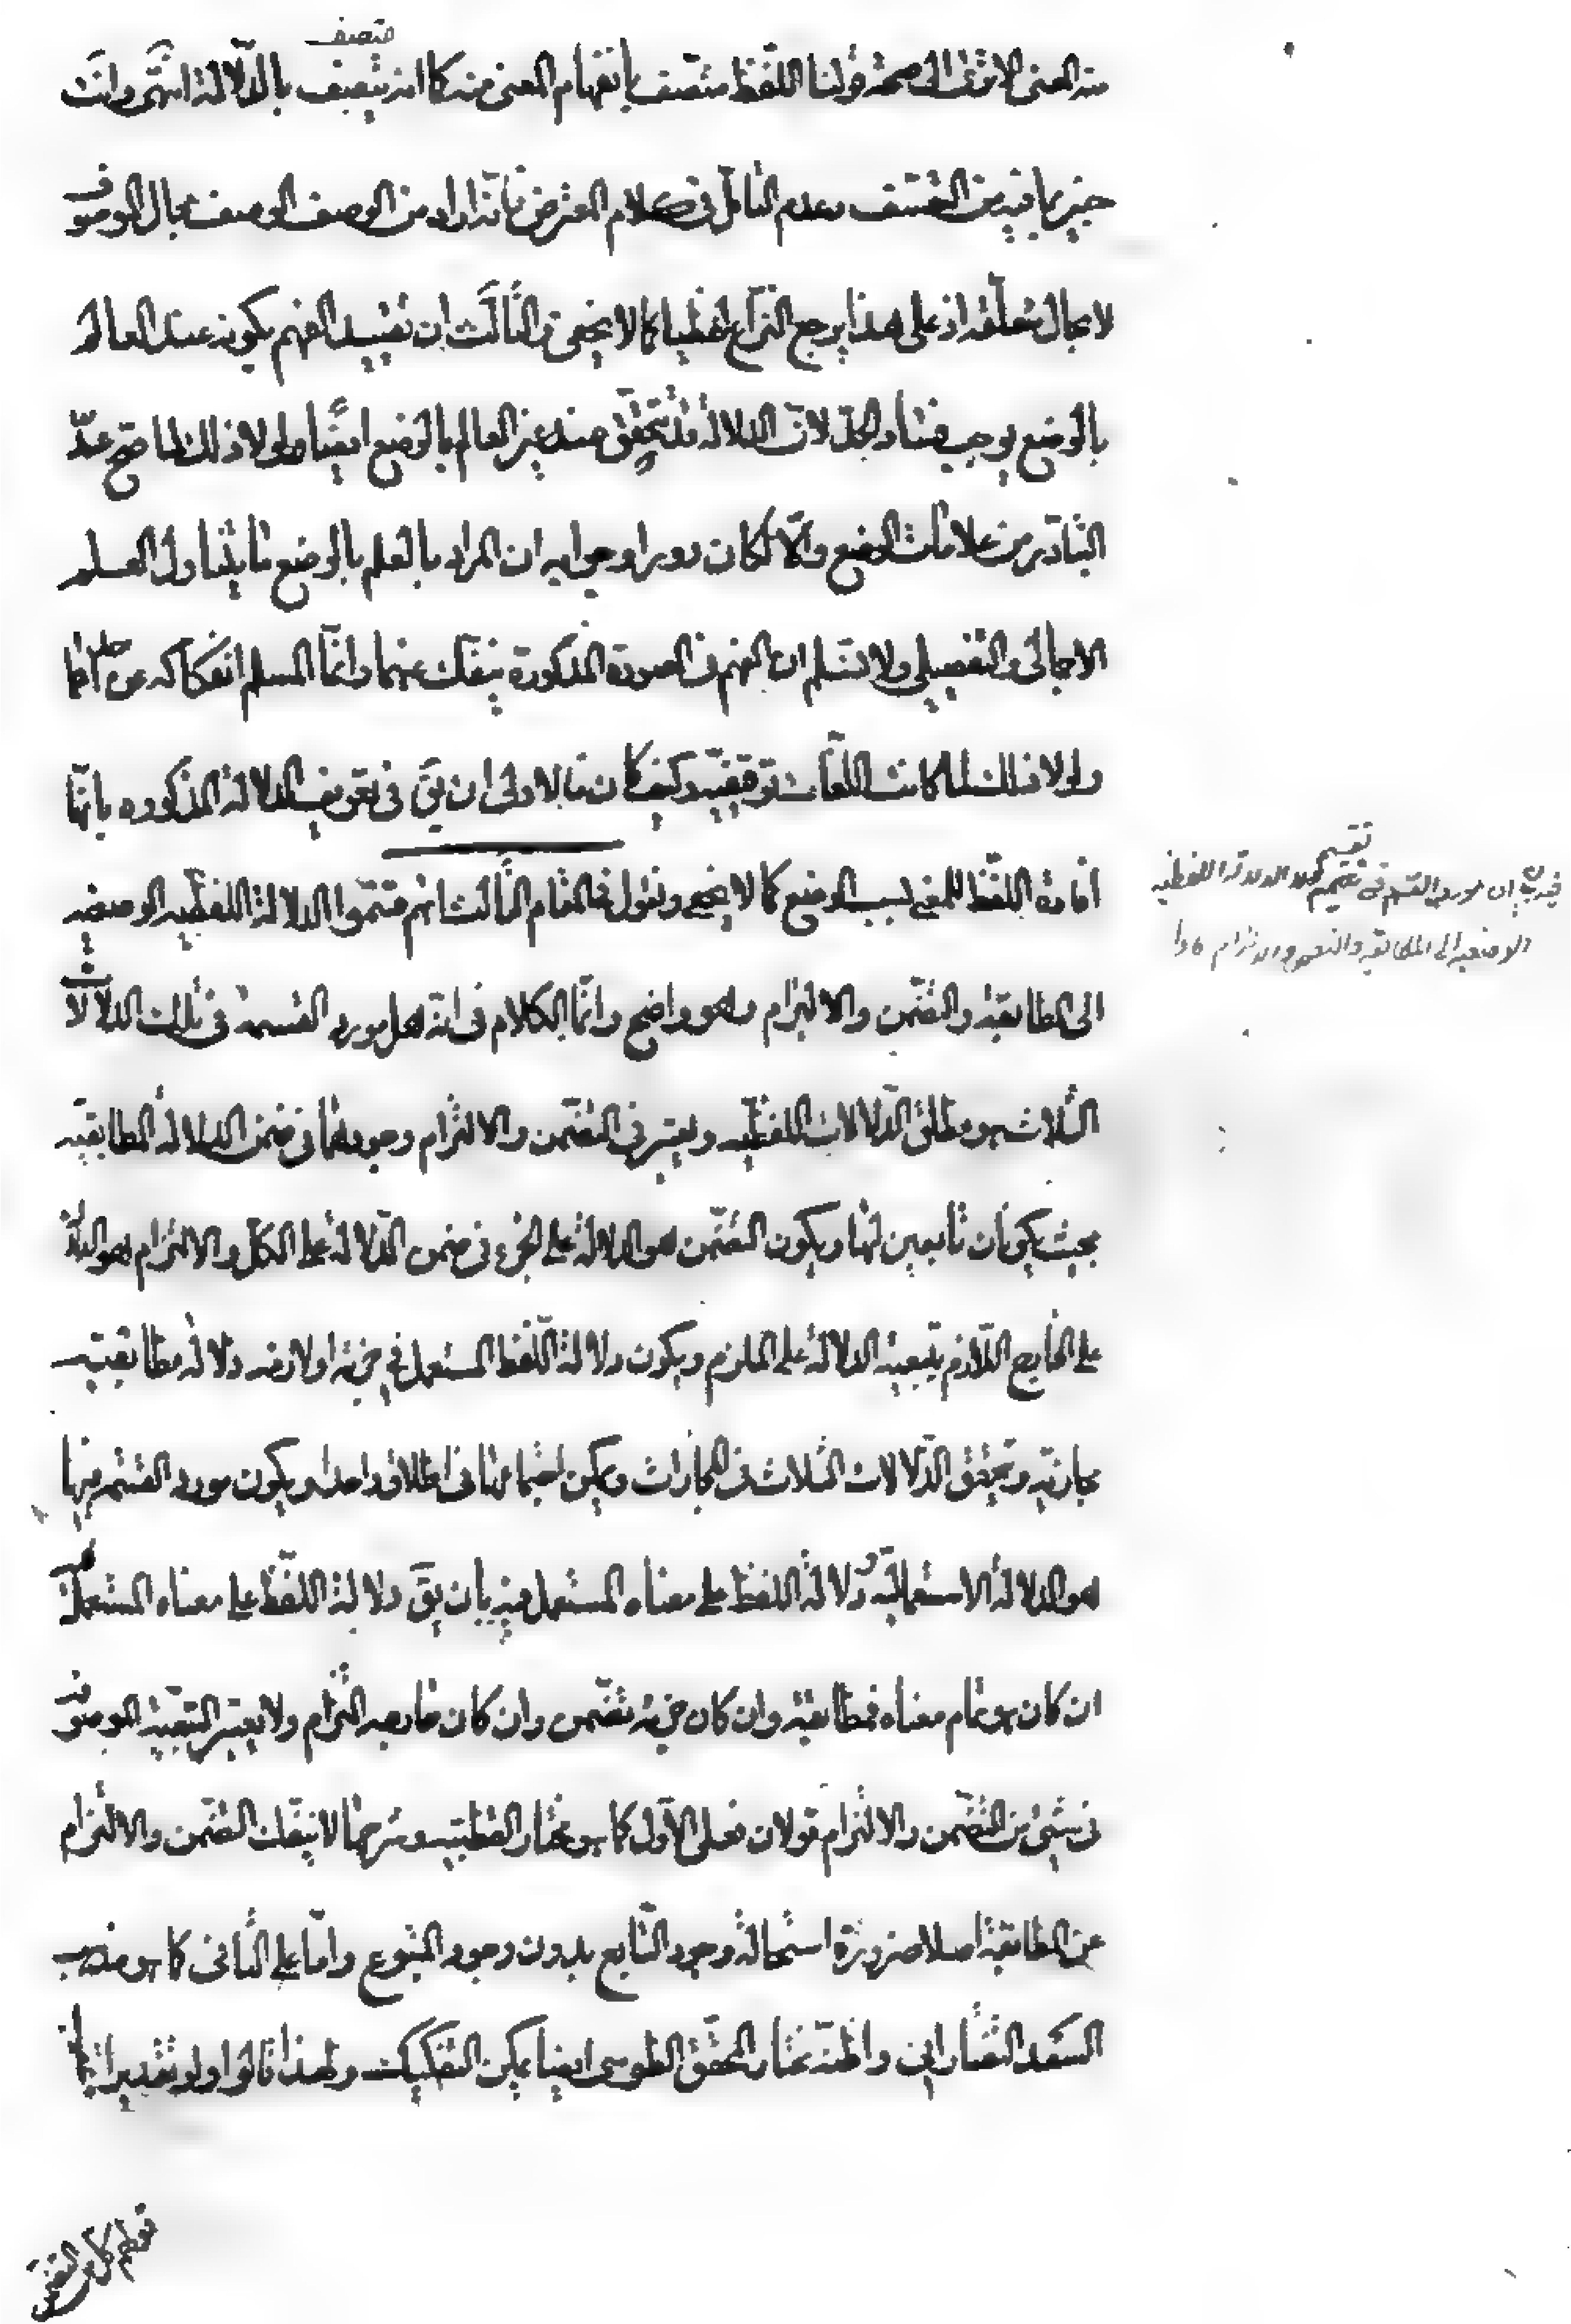 منه المعنى الا ترى الى صحة قولنا اللفظ متصف بانفهام المعنى منه كما انه متصف بالدلالة انتهى وانت
خبير بما فيه من التعسف وعدم التامل فى كلام المعترض فانه اراد من الوصف الوصف بحال الموصوف
لا بحال متعلقه اذ على هذا يرجع النزاع لفظيا كما لا يخفى والثالث ان تقييد الفهم بكونه عند العالم
بالوضع يوجب فساد الحد لان الدلالة قد تتحقق عند غير العالم بالوضع ايضا ولولا ذلك لما صح عد
التبادر من علامات الوضع والا لكان دورا وجوابه ان المراد بالعلم بالوضع ما يتناول العلم
الاجمالى والتفصيلى ولا نسلم ان الفهم فى الصورة المذكورة ينفك عنهما وانما المسلم انفكاكه عن
ولولا ذلك لما كانت اللغات توقيفية وكيف كان فالاولى ان يق فى تعريف الدلالة المذكوره بانها
افادة اللفظ للمعنى بسبب الوضع كما لا يخفى ونقول فى المقام الثالث انهم قسموا الدلالة اللفظيه الوضعيه
الى المطابقة والتضمن والالتزام وهو واضح وانما الكلام فى انه هل مورد القسمة فى تلك الدلالات
الثلاث هو مطلق الدلالات اللفظيه ويعتبر فى التضمن والالتزام وجودهما فى ضمن الدلالة المطابقيه
بحيث يكونان تابعين لها ويكون التضمن هو الدلالة على الجزء فى ضمن الدلالة على الكل والالتزام هو الدلالة
على الخارج اللازم بتبعية الدلالة على الملزوم ويكون دلالة اللفظ المستعمل فى جزئه او لازمه دلالة مطابقيه
مجازيه وتحقق الدلالات الثلاث فى المجازات ويمكن اجتماعها فى اطلاق واحد او يكون مورد القسمة فيها
هو الدلالة الاستعماليه ودلالة اللفظ على معناه المستعمل فيه بان يق دلالة اللفظ على معناه المستعمل فيه
ان كان هو تمام معناه فمطابقة وان كان جزئه تضمن وان كان خارجه التزام ولا يعتبر التبعية الموصوفه
فى شىء من التضمن والالتزام قولان فعلى الاول كما هو مختار القطب وغيرهما لا ينفك التضمن والالتزام
عن المطابقة اصلا ضرورة استحالة وجود التابع بدون وجود المتبوع واما على الثانى كما هو مذهب
السعد التفتازانى واظنه مختار المحقق الطوسى ايضا يمكن التفكيك ولهذا قالوا ولو تقديرا
ان مورد القسم فى تقسيم الدلالة اللفظيه
الوضعيه الى المطابقه والتضمن والالتزام